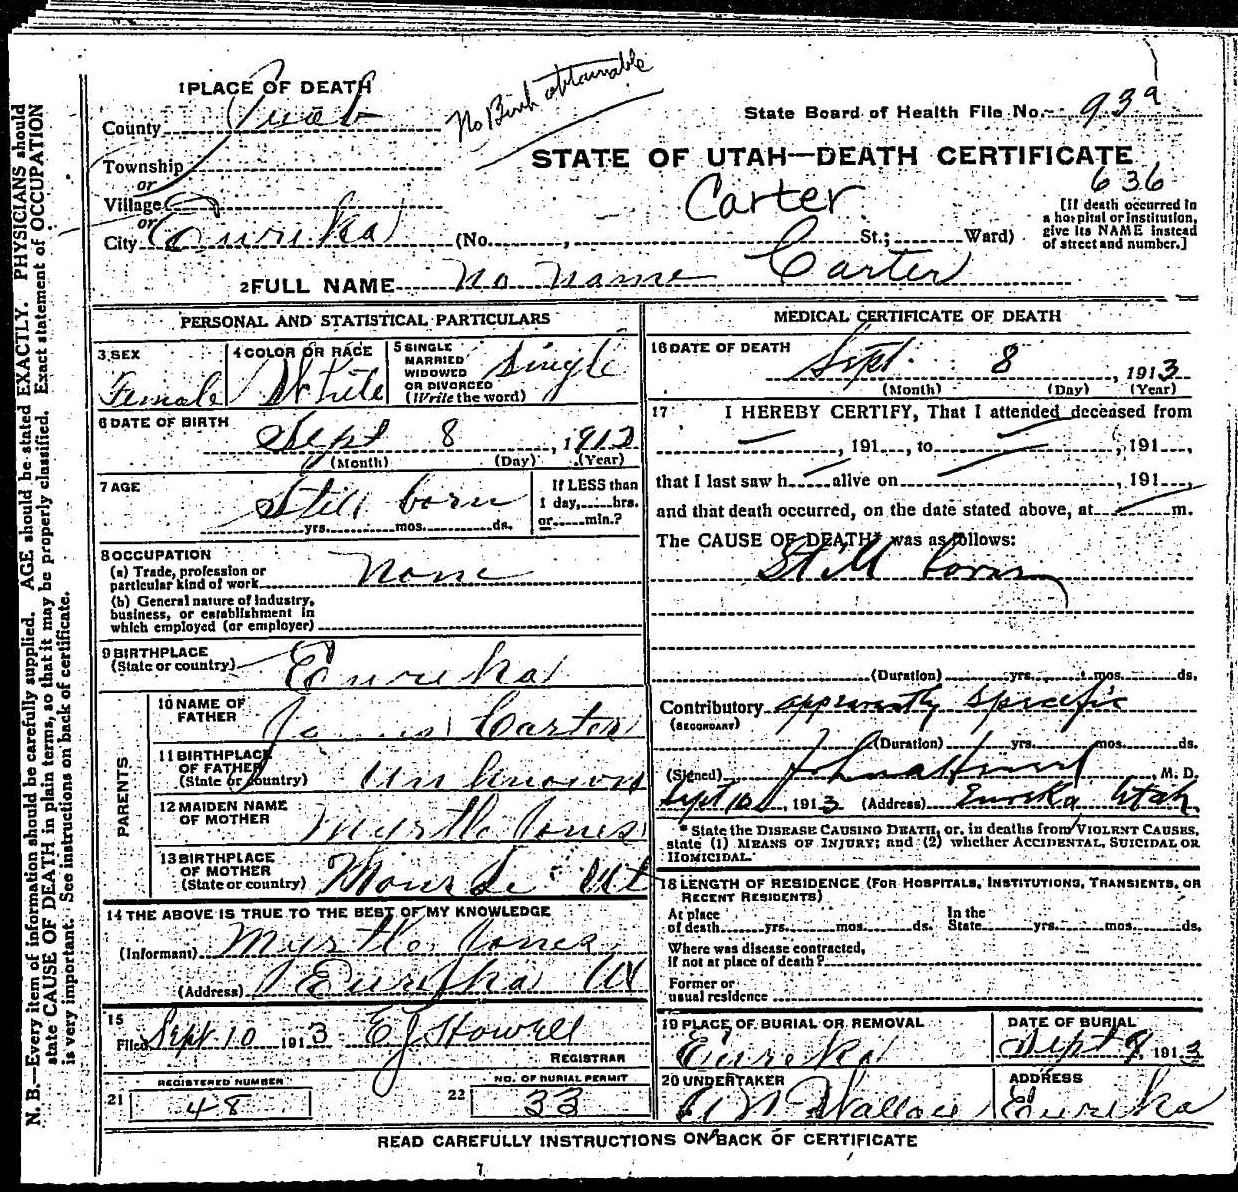 1 PLACE OF DEATH
County Juab
No Birth obtainable
State Board of Health File No. 93a
Township
or
STATE OF UTAH—DEATH CERTIFICATE
636
Village
or
Carter
[If death occurred in
a hospital or institution,
give its NAME instead
of street and number.]
City Eureka (No. , St.; Ward)
2 FULL NAME No name Carter
PERSONAL AND STATISTICAL PARTICULARS
3 SEX
Female
4 COLOR OR RACE
White
5 SINGLE
MARRIED
WIDOWED
OR DIVORCED
(Write the word)
Single
6 DATE OF BIRTH
Sept 8 , 1913
(Month) (Day) (Year)
7 AGE
Still born
yrs. mos. ds.
If LESS than
1 day, hrs.
or min.?
8 OCCUPATION
(a) Trade, profession or
particular kind of work None
(b) General nature of Industry,
business, or establishment in
which employed (or employer)
9 BIRTHPLACE
(State or country) Eureka
PARENTS
10 NAME OF
FATHER
James Carter
11 BIRTHPLACE
OF FATHER
(State or country) Unknown
12 MAIDEN NAME
OF MOTHER
Myrtle Jones
13 BIRTHPLACE
OF MOTHER
(State or country) Ut
14 THE ABOVE IS TRUE TO THE BEST OF MY KNOWLEDGE
(Informant) Myrtle Jones
(Address) Eureka Ut
15
Filed Sept 10 1913 E J Howell
REGISTRAR
REGISTERED NUMBER
21 48
NO. OF BURIAL PERMIT
22 33
MEDICAL CERTIFICATE OF DEATH
16 DATE OF DEATH
Sept. 8 , 1913
(Month) (Day) (Year)
17 I HEREBY CERTIFY, That I attended deceased from
, 191 , to , 191 ,
that I last saw h alive on , 191 ,
and that death occurred, on the date stated above, at m.
The CAUSE OF DEATH* was as follows:
Still born
(Duration) yrs. mos. ds.
Contributory apparently specific
(SECONDARY)
(Duration) yrs. mos. ds.
(Signed) , M. D.
Sept 10 , 1913 (Address) Eureka Utah
* State the DISEASE CAUSING DEATH, or, in deaths from VIOLENT CAUSES,
state (1) MEANS OF INJURY; and (2) whether ACCIDENTAL, SUICIDAL OR
HOMICIDAL.
18 LENGTH OF RESIDENCE (FOR HOSPITALS, INSTITUTIONS, TRANSIENTS, OR
RECENT RESIDENTS)
At place
of death yrs. mos. ds.
In the
State yrs. mos. ds.
Where was disease contracted,
If not at place of death?
Former or
usual residence
19 PLACE OF BURIAL OR REMOVAL
Eureka
DATE OF BURIAL
Sept 9, 1913
20 UNDERTAKER
Wallace
ADDRESS
Eureka
READ CAREFULLY INSTRUCTIONS ON BACK OF CERTIFICATE
N. B.—Every item of information should be carefully supplied. AGE should be stated EXACTLY. PHYSICIANS should
state CAUSE OF DEATH in plain terms, so that it may be properly classified. Exact statement of OCCUPATION
is very important. See instructions on back of certificate.